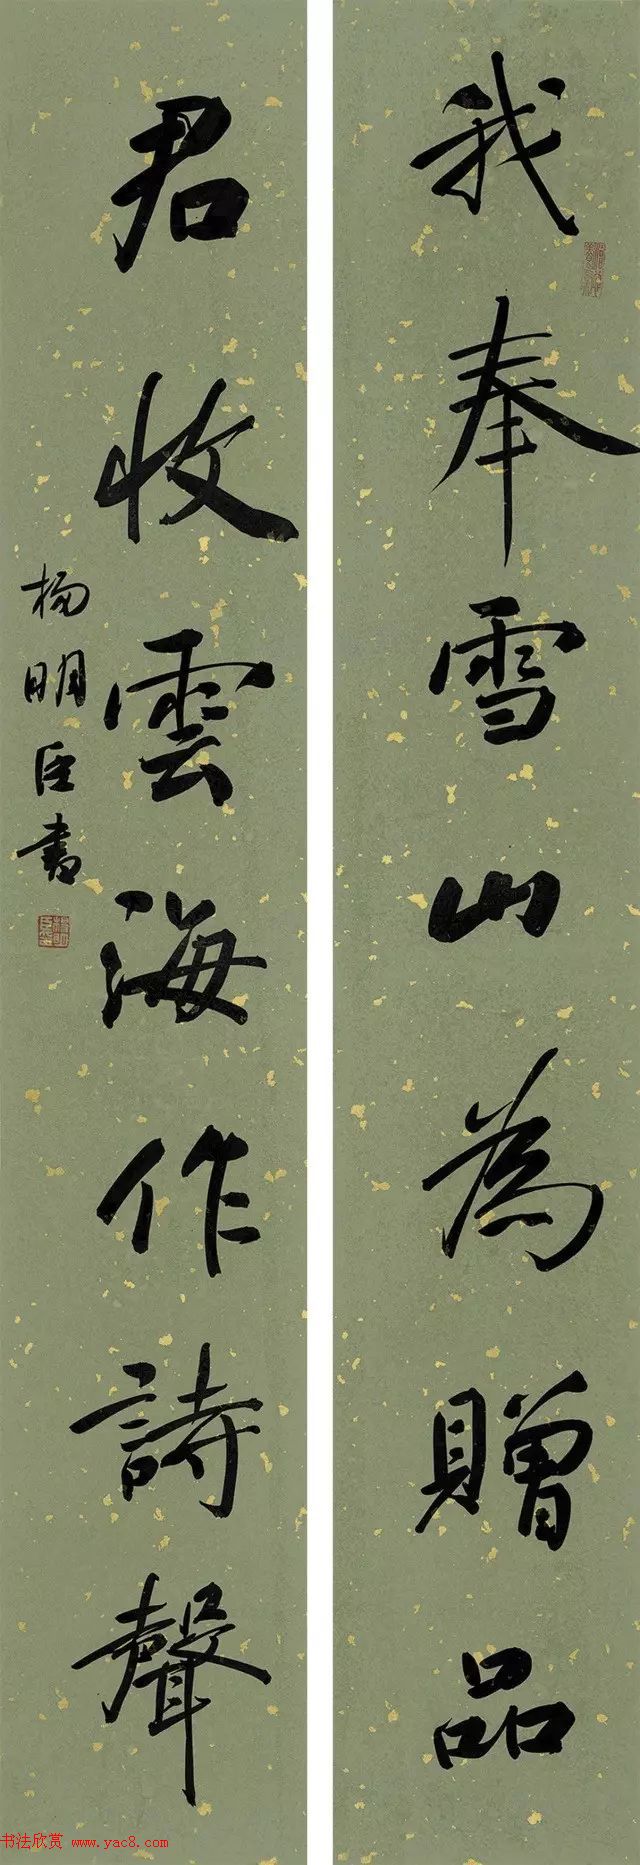 我奉雪山為贈品
君收雲海作詩聲
楊明臣書
书法欣赏 www.yac8.com